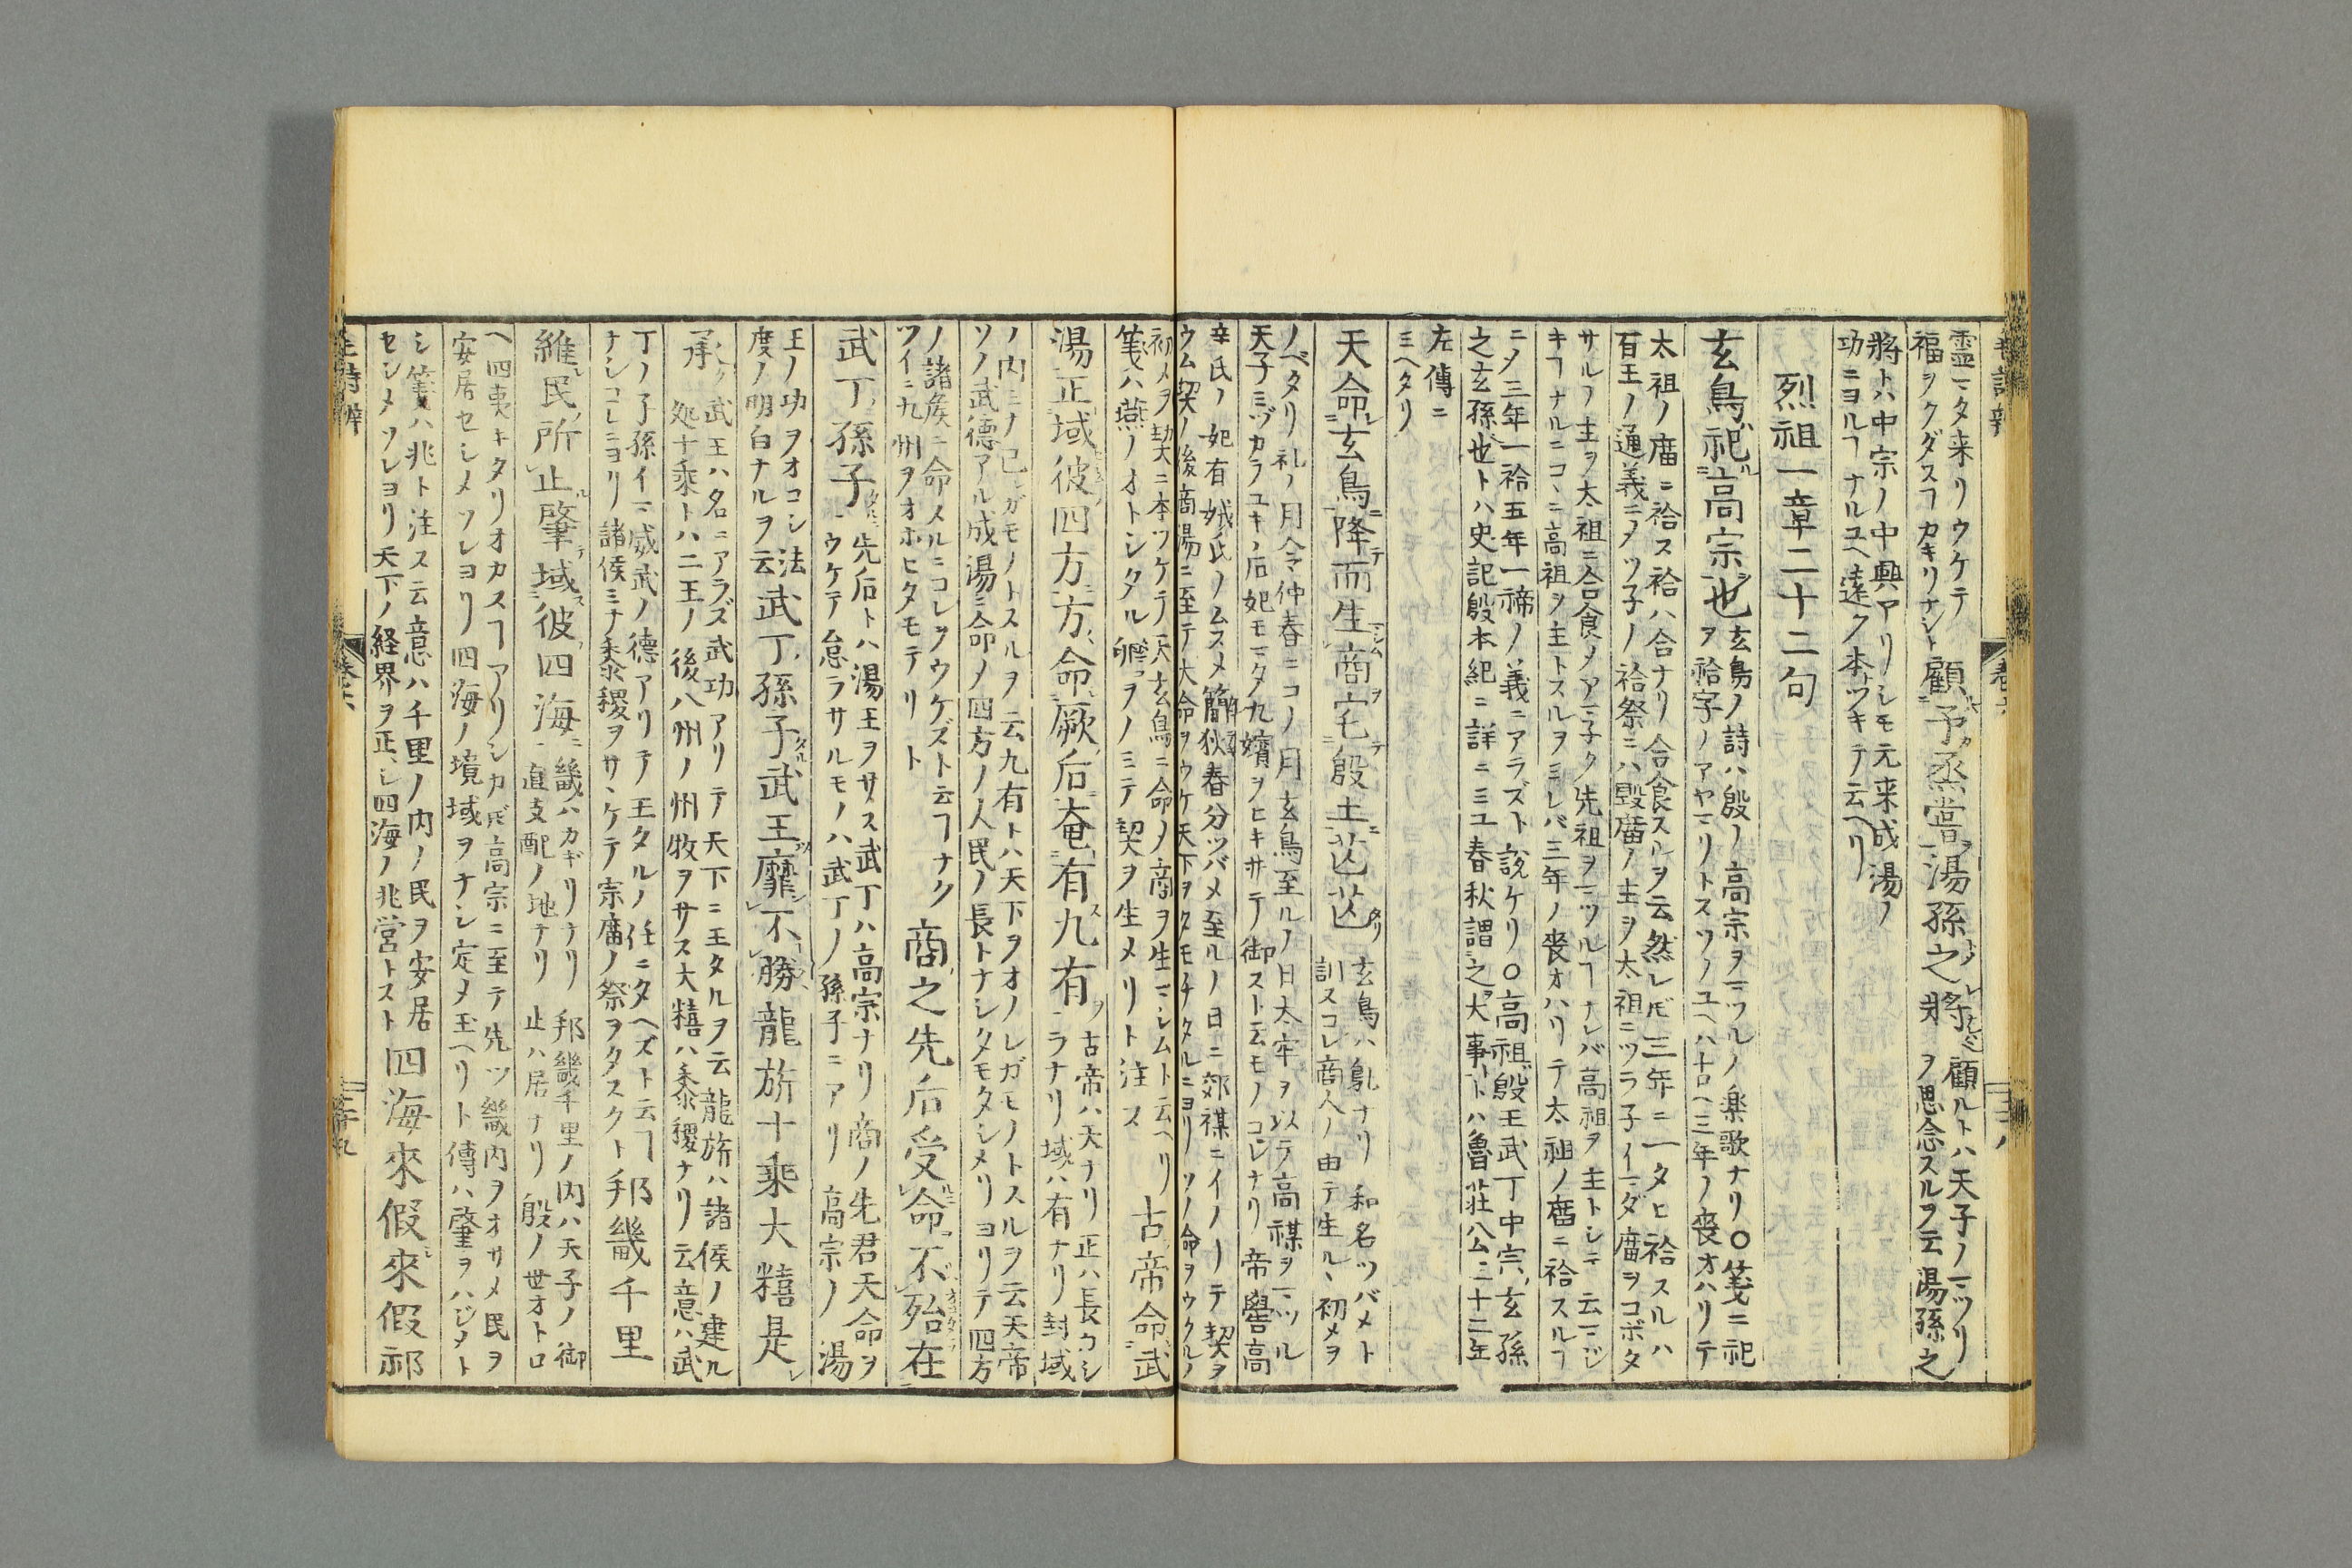 霊マタ来リウケテ
福ヲクダスヿカキリナシト
顧予烝嘗湯孫之將
顧ルトハ天子ノマツリ
ヲ思念スルヲ云湯孫之
將トハ中宗ノ中興アリシモ元来成湯ノ
功ニヨルヿナルユヘ遠ク本ツキテ云ヘリ
烈祖一章二十二句
玄鳥祀高宗也
玄鳥ノ詩ハ殷ノ高宗ヲマツルノ楽歌ナリ〇箋ニ祀
ヲ祫字ノアヤマリトスソノユヘハ古ヘ三年ノ喪オハリテ
太祖ノ廟ニ祫ス祫ハ合ナリ合食スルヲ云然レ𪜈三年ニ一タヒ祫スルハ
百王ノ通義ニメソ子ノ祫祭ニハ毀廟ノ主ヲ太祖ニツラ子イマダ廟ヲコボタ
サルノ主ヲ太祖ニ合食メアマ子ク先祖ヲマツルヿナレバ高祖ヲ主トシニ云マジ
キヿナルニコヽニ高祖ヲ主トスルヲミレバ三年ノ喪オハリテ太祖ノ廟ニ祫スルヿ
ニソ三年一祫五年一禘ノ義ニアラズト説ケリ〇高祖殷王武丁中宗玄孫
之玄孫也トハ史記殷本紀ニ詳ニミユ春秋謂之大事トハ魯荘公二十二年
左傳ニ
ミヘタリ
天命玄鳥降而生商宅殷土芒芒
玄鳥ハ鳦ナリ和名ツバメト
訓スコレ商人ノ由テ生ルヽ初メヲ
ノベタリ礼ノ月令仲春ニコノ月玄鳥至ルノ日太牢ヲ以テ高禖ヲマツル
天子ミヅカラユキノ后妃モマタ九嬪ヲヒキサテ御スト云モノコレナリ帝嚳高
辛氏ノ妃有娀氏ノムスメ簡狄春分ツバメ至ルノ日ニ郊禖ニイノリテ契ヲ
ウム契ノ後商湯ニ至テ大命ヲウケ天下ヲタモチタルニヨリソノ命ヲウクルノ
初メヲ契ニ本ツケテ天玄鳥ニ命メ商ヲ生マシムト云ヘリ
箋ハ燕ノオトシタル卵ヲノミテ契ヲ生メリト注ス
古帝命武
湯正域彼四方方命厥后奄有九有
古帝ハ天ナリ正ハ長カシ
ラナリ域ハ有ナリ封域
ノ内ミナ己レガモノトスルヲ云九有トハ天下ヲオノレガモノトスルヲ云天帝
ソノ武徳アル成湯ニ命メ四方ノ人民ノ長トナシタモタシメリヨリテ四方
ノ諸侯ニ命メルニコレヲウケズト云ヿナク
ツイニ九州ヲオホヒタモテリト
商之先后受命不殆在
武丁孫子
先后トハ湯王ヲサス武丁ハ高宗ナリ商ノ先君天命ヲ
ウケテ怠ラサルモノハ武丁ノ孫子ニアリ高宗ノ湯
王ノ功ヲオコシ法
度ノ明白ナルヲ云
武丁孫子武王靡不勝龍旂十乗大糦是
承
武王ハ名ニアラズ武功アリテ天下ニ王タルヲ云龍旂ハ諸侯ノ建ル
処十乗トハ二王ノ後八州ノ州牧ヲサス大糦ハ黍稷ナリ云意ハ武
丁ノ子孫イマ威武ノ德アリテ王タルノ任ニタヘズト云ヿ
ナシコレニヨリ諸侯ミナ黍稷ヲサヽケテ宗廟ノ祭ヲタスクト
邦畿千里
維民所止肇域彼四海
畿ハカギリナリ邦畿千里ノ内ハ天子ノ御
直支配ノ地ナリ止ハ居ナリ殷ノ世オトロ
ヘ四夷キタリオカスヿアリシカ𪜈高宗ニ至テ先ツ畿内ヲオサメ民ヲ
安居セシメソレヨリ四海ノ境域ヲナシ定メ玉ヘリト傳ハ肇ヲハジメト
シ箋ハ兆ト注ス云意ハ千里ノ内ノ民ヲ安居
セシメソレヨリ天下ノ経界ヲ正シ四海ノ兆営トスト
四海來假來假祁